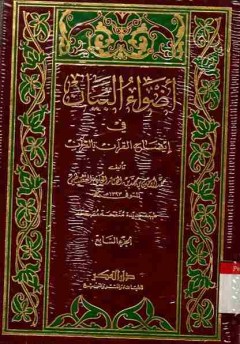 أضواء البيان
في
إيضاح القرآن بالقرآن
تأليف
محمد الأمين بن محمد المختار الجكني الشنقيطي
المتوفى ١٣٩٣ هـ
الجزء السابع
دار الفكر
للطباعة والنشر والتوزيع